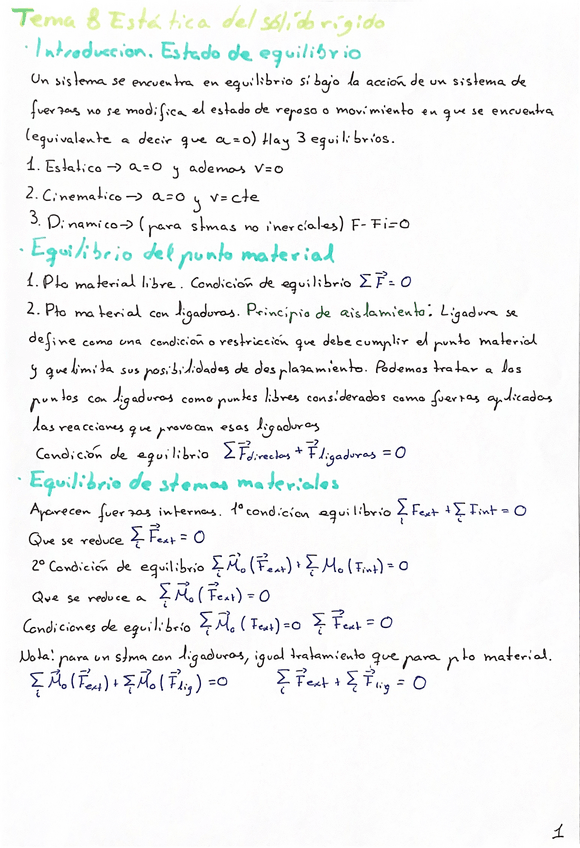 Tema 8 Estática del sólido rígido
· Introduccion. Estado de equilibrio
Un sistema se encuentra en equilibrio si bajo la acción de un sistema de
fuerzas no se modifica el estado de reposo o movimiento en que se encuentra
(equivalente a decir que a=0) Hay 3 equilibrios.
1. Estatico → a=0 y ademas v=0
2. Cinematico → a=0 y v=cte
3. Dinamico → (para stmas no inerciales) F-Fi=0
· Equilibrio del punto material
1. Pto material libre. Condición de equilibrio Σ F⃗ = 0
2. Pto material con ligaduras. Principio de aislamiento: Ligadura se
define como una condición o restricción que debe cumplir el punto material
y que limita sus posibilidades de desplazamiento. Podemos tratar a los
puntos con ligaduras como puntos libres considerados como fuerzas aplicadas
las reacciones que provocan esas ligaduras
Condición de equilibrio Σ F⃗directas + F⃗ligaduras = 0
· Equilibrio de stemas materiales
Aparecen fuerzas internas. 1º condicion equilibrio Σi Fext + Σi Fint = 0
Que se reduce Σi F⃗ext = 0
2º Condición de equilibrio Σi M⃗o (F⃗ext) + Σi Mo (Fint) = 0
Que se reduce a Σi M⃗o (F⃗ext) = 0
Condiciones de equilibrio Σi M⃗o (Fext) = 0 Σi F⃗ext = 0
Nota: para un stma con ligaduras, igual tratamiento que para pto material.
Σi M⃗o (F⃗ext) + Σi M⃗o (F⃗lig) = 0 Σi F⃗ext + Σi F⃗lig = 0
1